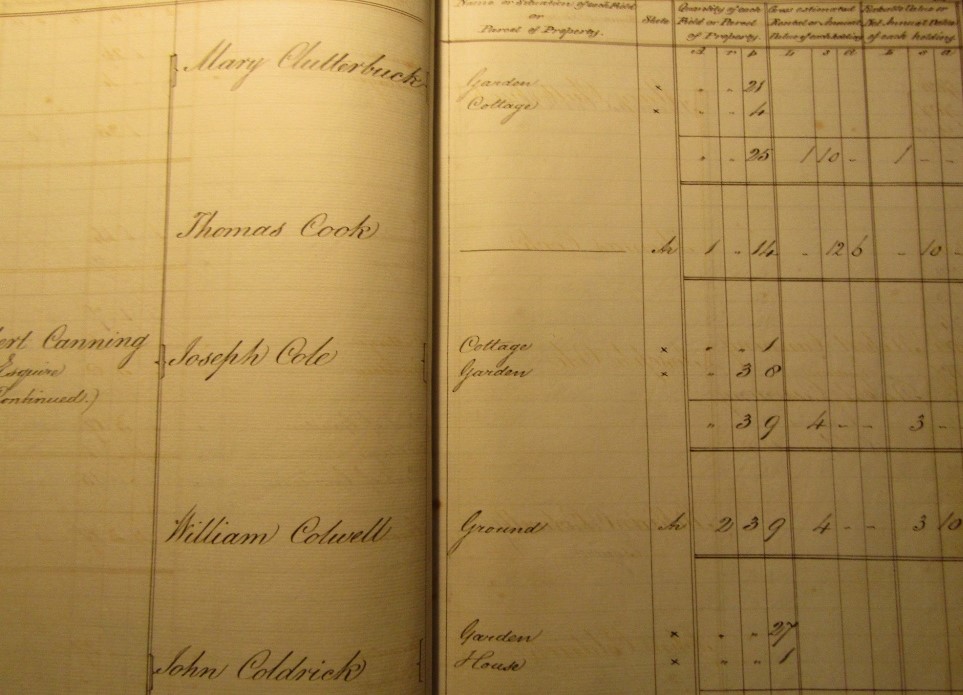 Name or Situation of each Field or Parcel of Property.
State
Quantity of each Field or Parcel of Property.
Gross estimated Rental or Annual Value of each holding
Rateable Value or Net Annual Value of each holding.
a r p £ s d £ s d
Mary Clutterbuck
Garden × " " 21
Cottage × " " 4
" " 25 1 10 - 1 - -
Thomas Cook
Ar 1 " 14 - 12 6 - 10 -
Canning
Esquire
Continued.)
Joseph Cole
Cottage × " " 1
Garden × " 3 8
" 3 9 4 - - 3 - -
William Colwell
Ground Ar 2 3 9 4 - - 3 10
John Coldrick
Garden × " " 27
House × " " 1